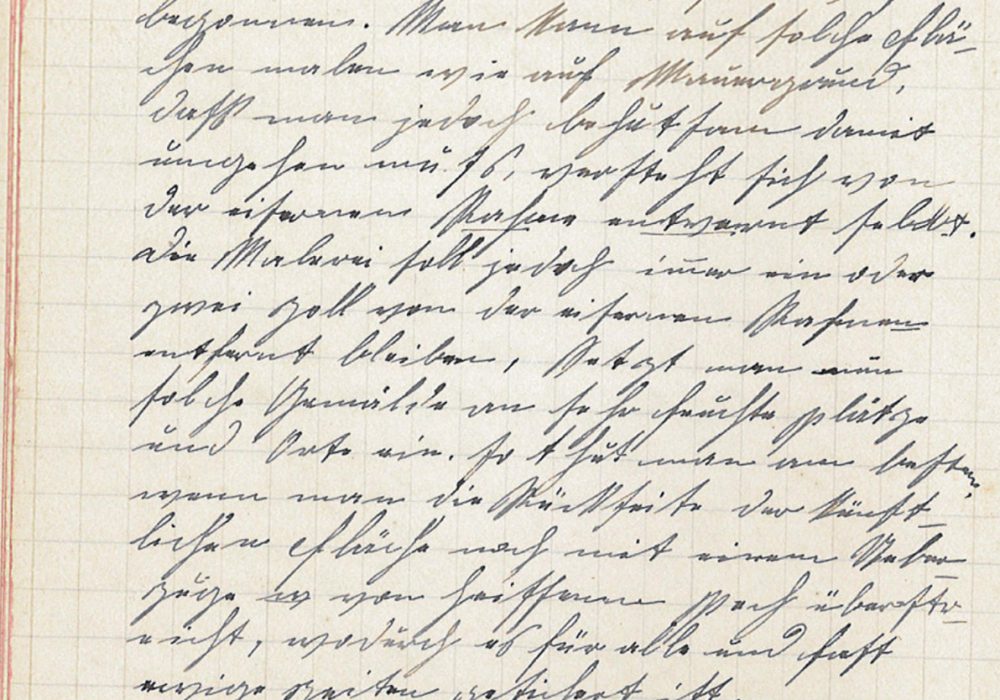 begonnen. Man kann auf solche Flä-
chen malen wie auf Mauergrund,
daß man jedoch behutsam damit
umgehen muß, versteht sich von
der eisernen Rahme entvernt selbst.
Die Malerei soll jedoch im̄er ein oder
zwei Zoll von der eisernen Rahmen
entfernt bleiben, Setzt man nun
solche Gemälde an sehr feuchte plätze
und Orte ein. so thut man am besten,
wenn man die Rückseite der künst-
lichen Fläche noch mit einem Ueber-
zuge von heissem Pech überstr-
eicht, wodurch es für alle und fast
ewige Zeiten gesichert ist.